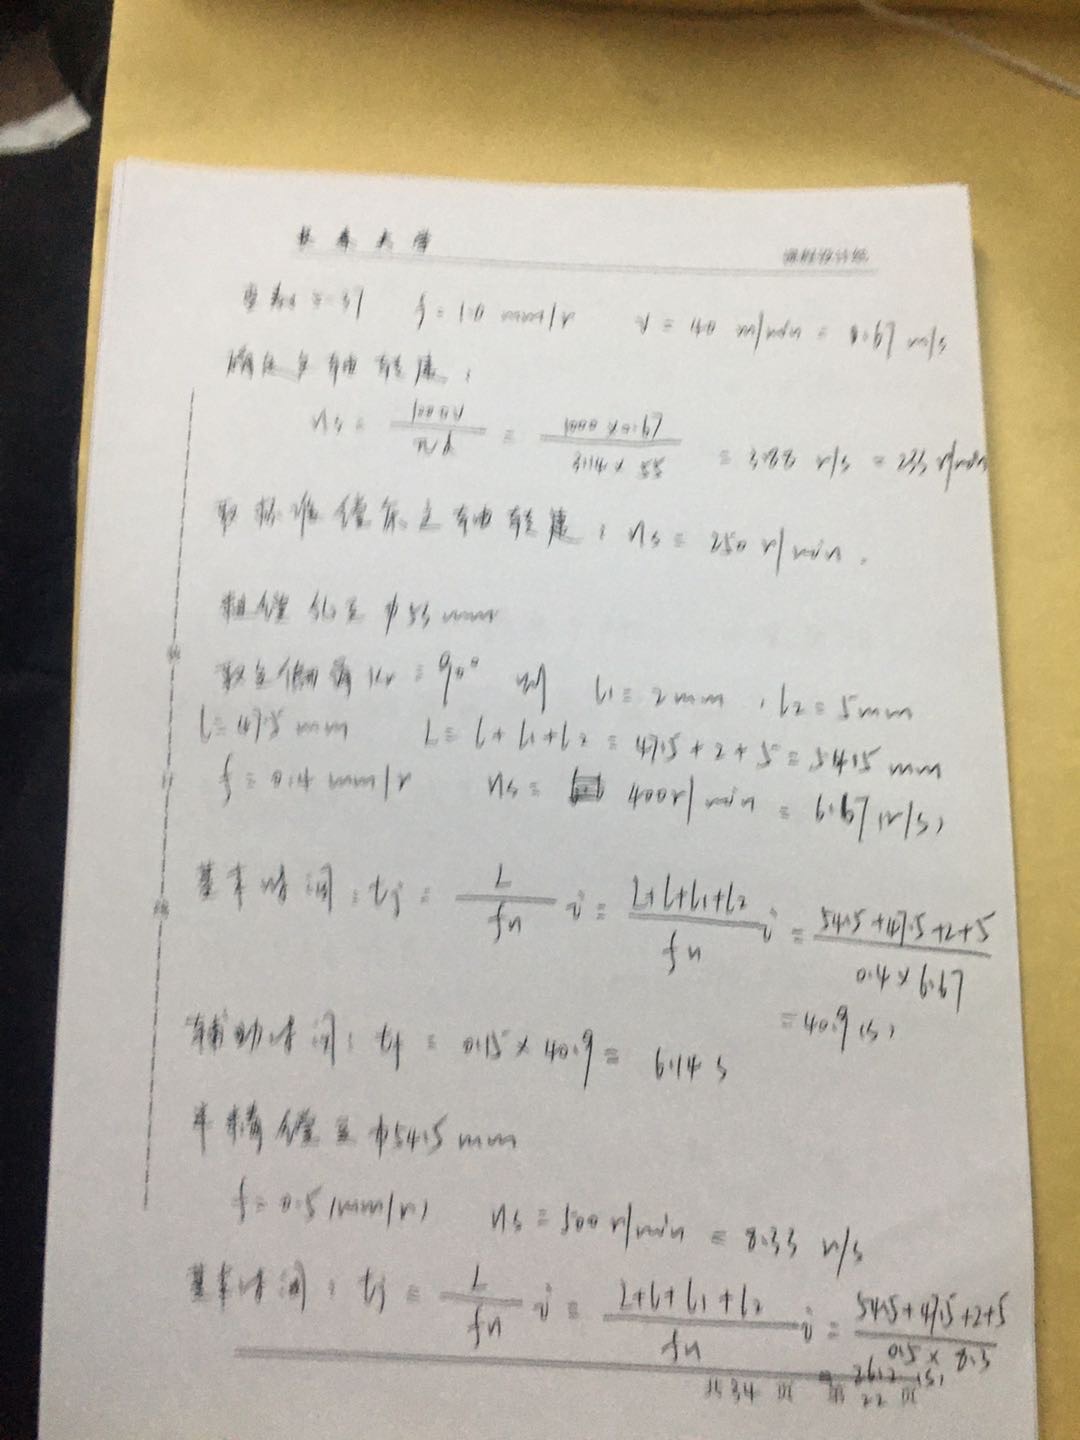 长春大学 课程设计纸
f=1.0 mm/r v=40 m/min=0.67 m/s
确定主轴转速:
ns=1000v/πd=1000×0.67/3.14×55=3.88 r/s=233 r/min
取标准镗床主轴转速,ns=250 r/min.
粗镗孔至φ53mm
取主偏角Kr=90° 则 l1=2mm,l2=5mm
l=47.5mm L=l+l1+l2=47.5+2+5=54.5mm
f=0.4mm/r ns=400r/min=6.67(r/s)
基本时间:tj=L/fn i=L+l+l1+l2/fn i=54.5+47.5+2+5/0.4×6.67
=40.9(s)
辅助时间:tf=0.15×40.9=6.14s
半精镗至φ54.5mm
f=0.5(mm/r) ns=500r/min=8.33 r/s
基本时间:tj=L/fn i=L+l+l1+l2/fn i=54.5+47.5+2+5/0.5×8.3
=26.2(s)
共34页 第22页